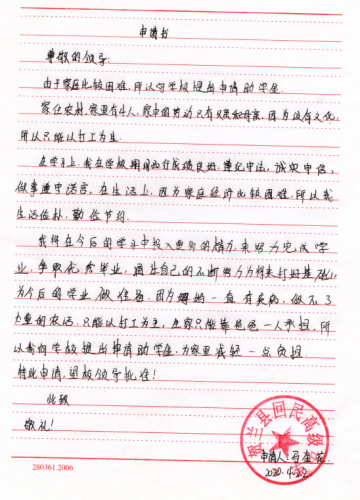 申请书
尊敬的领导:
由于家庭比较困难,所以向学校提出申请助学金.
家住农村,家里有4人,家中的劳动只有父亲和母亲,因为没有文化,
所以只能以打工为生.
在学习上,我在学校期间品行成绩良好,遵纪守法,诚实守信,
做事遵守诺言,在生活上,因为家庭经济比较困难,所以我
生活俭朴,勤俭节约.
我将在今后的学习中投入更多的精力,来努力完成学
业,争取优秀毕业,通过自己的不断努力为将来打好基础,
为今后的学业做准备.因为妈妈一直有疾病,做不了
太重的农活,只能以打工为主,在家只能靠爸爸一人承担,所
以我向学校提出申请助学金.为家里减轻一点负担.
特此申请,望校领导批准!
此致
敬礼!
贺兰县回民高级
申请人:马
2020.4.22
280361.2006